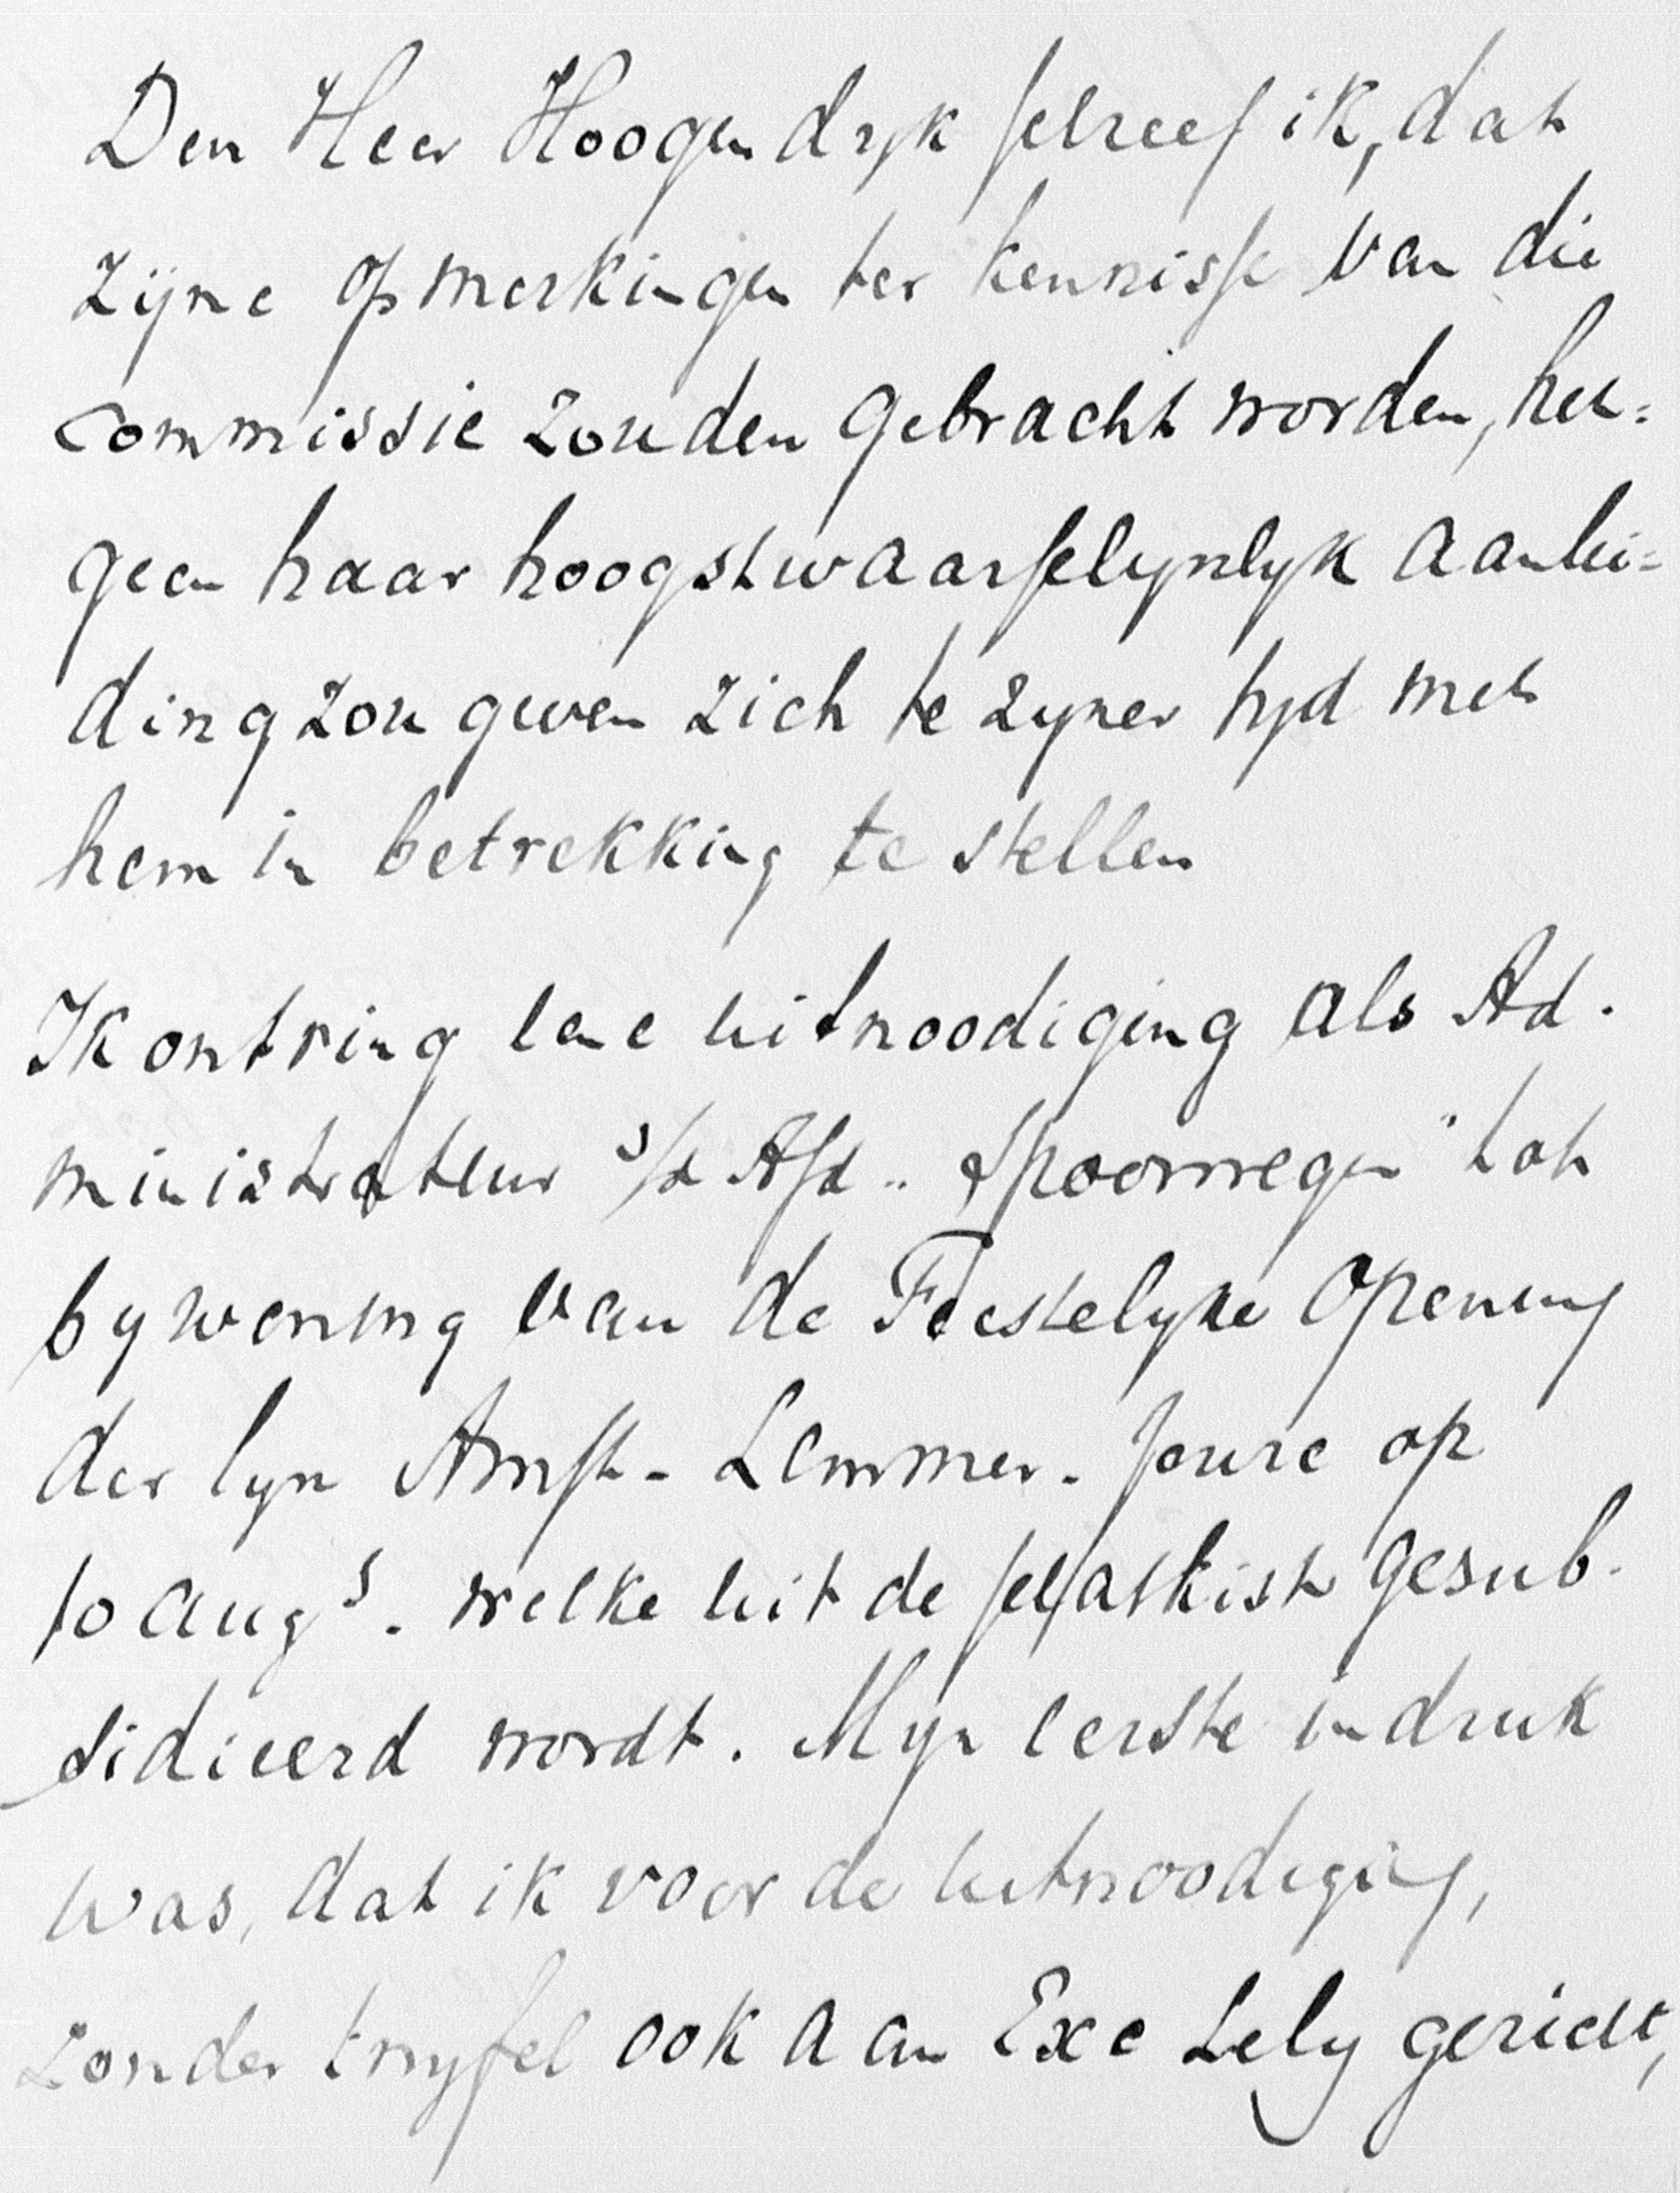 Den Heer Hoogendyk schreef ik, dat
zijne opmerkingen ter kennisse van die
Commissie zouden gebracht worden, het=
geen haar hoogstwaarschynlyk aanlei=
ding zou geven zich te zyner tyd met
hem in betrekking te stellen
Ik ontving eene uitnoodiging als Ad-
ministrateur v/d Afd „Spoorwegen" tot
bywoning van de Feestelyke Opening
der lyn Amst- Lemmer- Joure op
10 Augs. welke uit de schatkist gesub-
sidieerd wordt. Myn eerste indruk
was, dat ik voor de uitnoodiging,
zonder twyfel ook aan Exc Lely gericht,